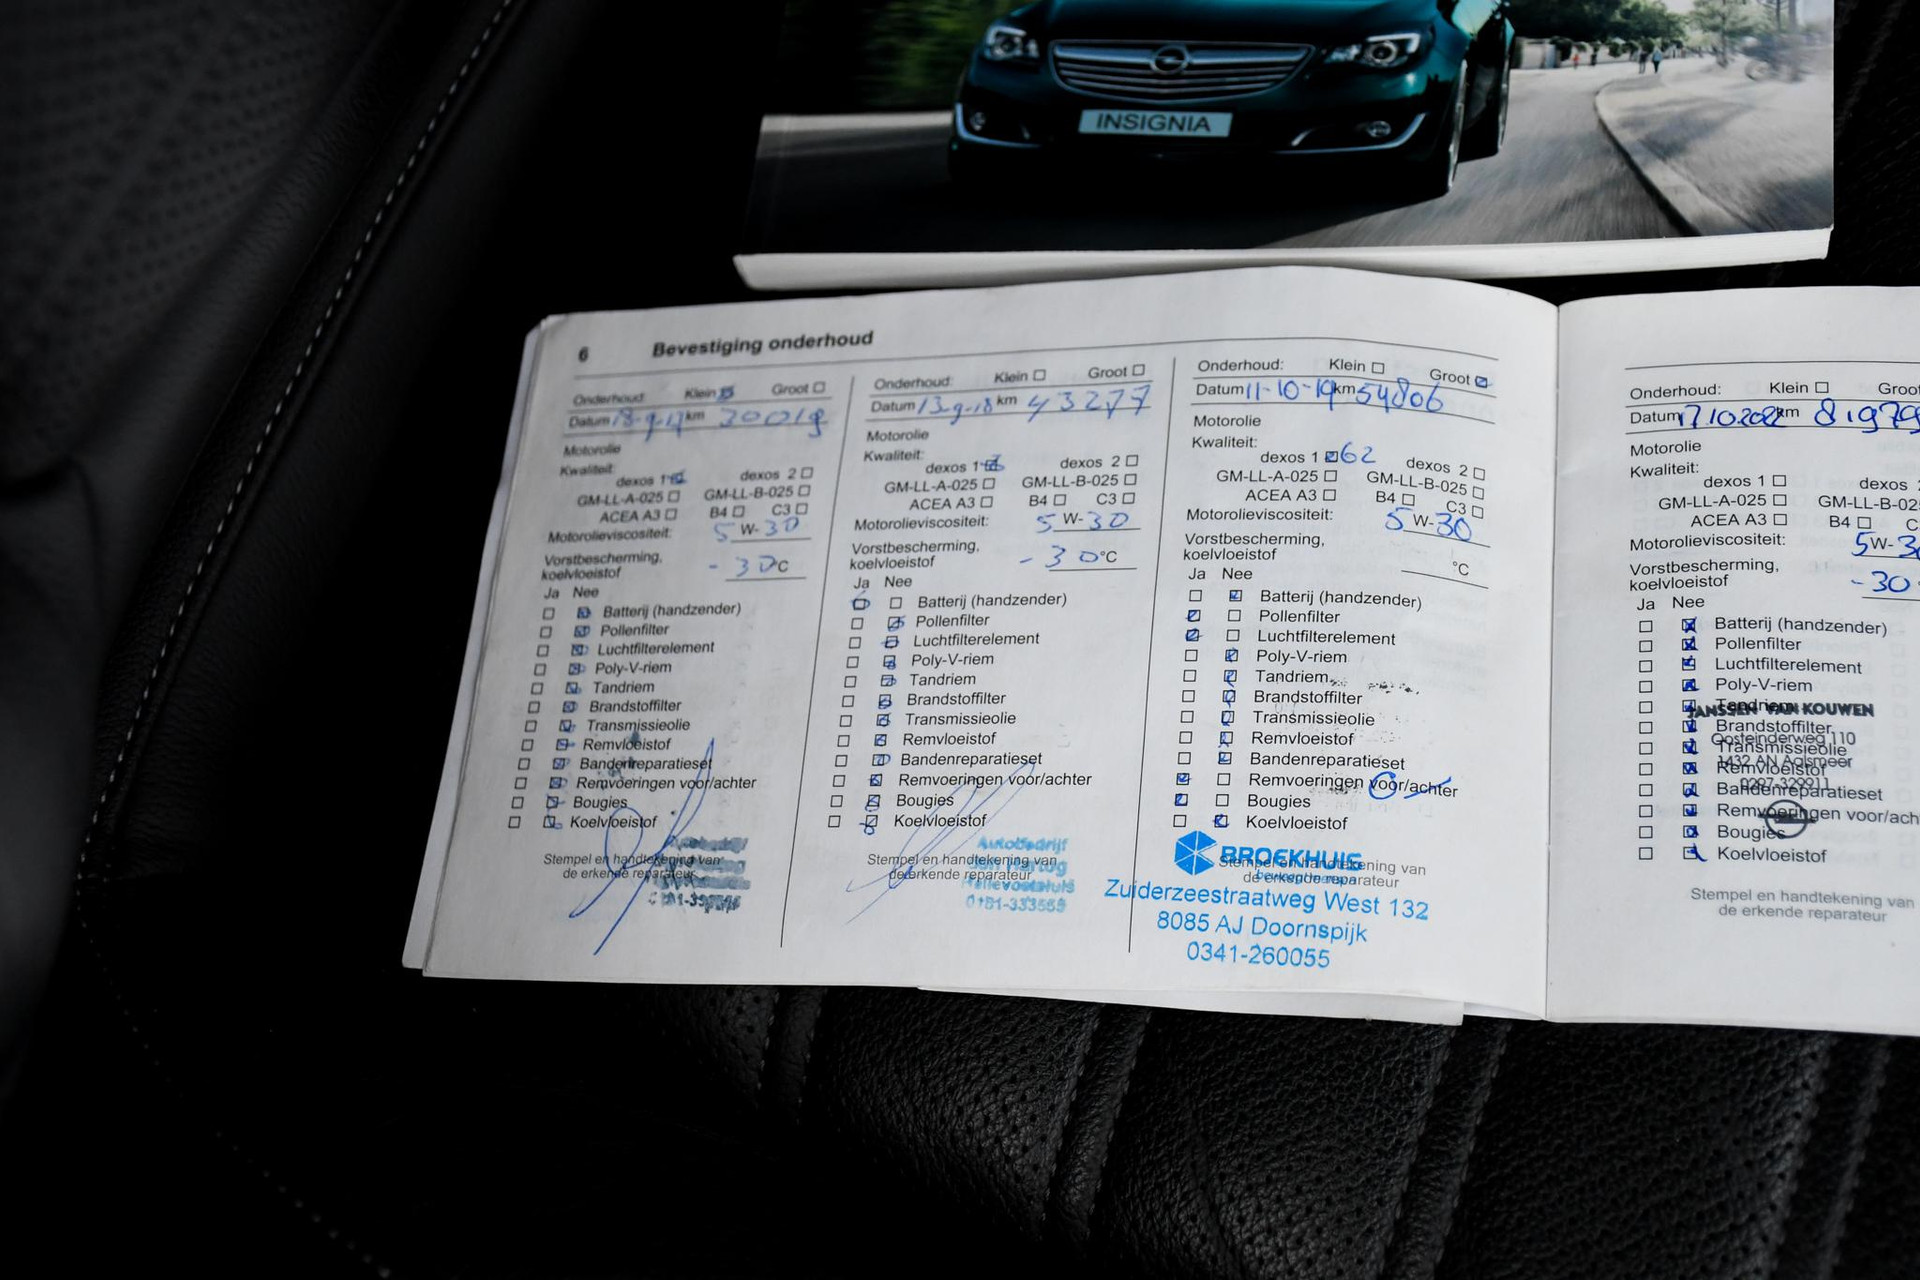 INSIGNIA
6 Bevestiging onderhoud
Onderhoud: Klein Groot
Datum 18-9-17 km 30019
Motorolie
Kwaliteit:
dexos 1 dexos 2
GM-LL-A-025 GM-LL-B-025
ACEA A3 B4 C3
Motorolieviscositeit: 5 W-30
Vorstbescherming,
koelvloeistof -30°C
Ja Nee
Batterij (handzender)
Pollenfilter
Luchtfilterelement
Poly-V-riem
Tandriem
Brandstoffilter
Transmissieolie
Remvloeistof
Bandenreparatieset
Remvoeringen voor/achter
Bougies
Koelvloeistof
Stempel en handtekening van
de erkende reparateur
Onderhoud: Klein Groot
Datum 13-9-18 km 43277
Motorolie
Kwaliteit:
dexos 1 dexos 2
GM-LL-A-025 GM-LL-B-025
ACEA A3 B4 C3
Motorolieviscositeit: 5 W-30
Vorstbescherming,
koelvloeistof -30°C
Ja Nee
Batterij (handzender)
Pollenfilter
Luchtfilterelement
Poly-V-riem
Tandriem
Brandstoffilter
Transmissieolie
Remvloeistof
Bandenreparatieset
Remvoeringen voor/achter
Bougies
Koelvloeistof
Autobedrijf
Stempel en handtekening van
de erkende reparateur
Hellevoetsluis
0181-333569
Onderhoud: Klein Groot
Datum 11-10-19 km 54806
Motorolie
Kwaliteit:
dexos 1 G2 dexos 2
GM-LL-A-025 GM-LL-B-025
ACEA A3 B4 C3
Motorolieviscositeit: 5 W-30
Vorstbescherming,
koelvloeistof °C
Ja Nee
Batterij (handzender)
Pollenfilter
Luchtfilterelement
Poly-V-riem
Tandriem
Brandstoffilter
Transmissieolie
Remvloeistof
Bandenreparatieset
Remvoeringen voor/achter
Bougies
Koelvloeistof
BROEKHUIS
Stempel en handtekening van
de erkende reparateur
Zuiderzeestraatweg West 132
8085 AJ Doornspijk
0341-260055
Onderhoud: Klein Groot
Datum 17.10.2022 km 81979
Motorolie
Kwaliteit:
dexos 1 dexos
GM-LL-A-025 GM-LL-B-02
ACEA A3 B4 C
Motorolieviscositeit: 5 W-3
Vorstbescherming,
koelvloeistof -30
Ja Nee
Batterij (handzender)
Pollenfilter
Luchtfilterelement
Poly-V-riem
Tandriem
JANSSEN VAN KOUWEN
Brandstoffilter
Oosteinderweg 110
Transmissieolie
1432 AN Aalsmeer
Remvloeistof
0297-329911
Bandenreparatieset
Remvoeringen voor/ach
Bougies
Koelvloeistof
Stempel en handtekening van
de erkende reparateur